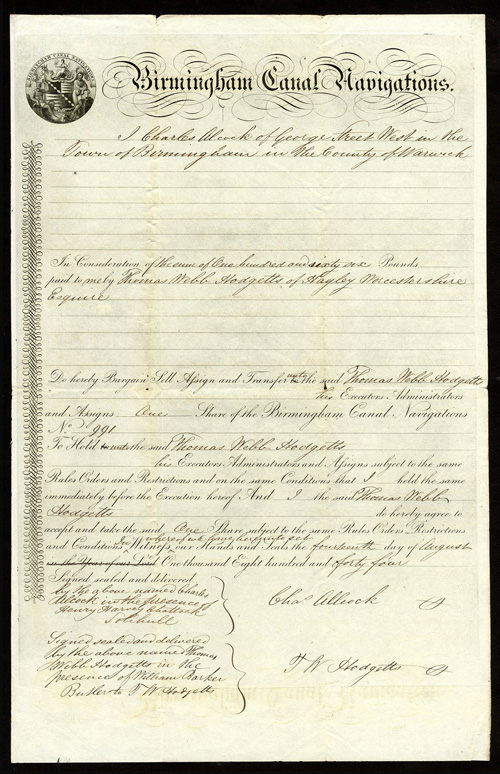 BIRMINGHAM CANAL NAVIGATIONS
Birmingham Canal Navigations.
I Charles Alcock of George Street West in the
Town of Birmingham in the County of Warwick
In Consideration of the sum of One hundred and sixty six Pounds
paid to me by Thomas Webb Hodgetts of Hagley Worcestershire
Esquire
Do hereby Bargain Sell Assign and Transfer unto the said Thomas Webb Hodgetts
his Executors Administrators
and Assigns One Share of the Birmingham Canal Navigations
No. 991
To Hold to the said Thomas Webb Hodgetts
his Executors Administrators and Assigns subject to the same
Rules Orders and Restrictions and on the same Conditions that I held the same
immediately before the Execution hereof And I the said Thomas Webb
Hodgetts do hereby agree to
accept and take the said One Share subject to the same Rules Orders Restrictions
and Conditions In Witness whereof we have hereunto set our Hands and Seals the fourteenth day of August
in the Year of our Lord One thousand Eight hundred and forty four
Signed sealed and delivered
by the above named Charles
Alcock in the presence of
Henry Harvey Chattock
Solihull
Chas Allcock
Signed sealed and delivered
by the above name Thomas
Webb Hodgetts in the
presence of William Barker
Butler to T W Hodgetts
T W Hodgetts